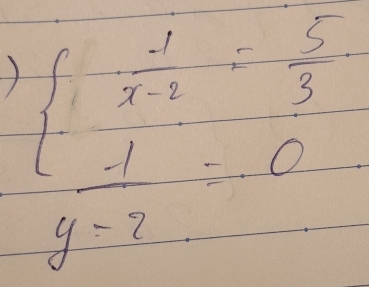 ) { 1/(x-2) = 5/3
1/(y-2) = 0